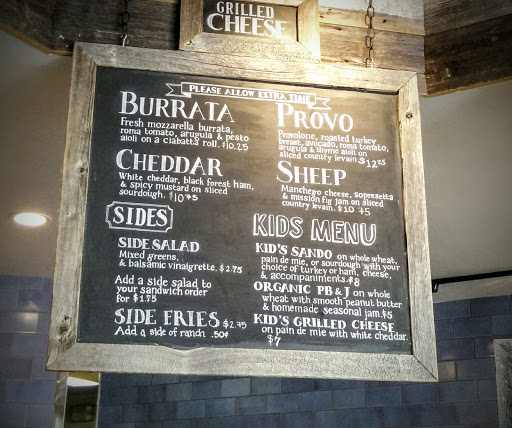 GRILLED
CHEESE
PLEASE ALLOW EXTRA TIME
BURRATA
Fresh mozzarella burrata,
roma tomato, arugula & pesto
aioli on a ciabatta roll. $10.25
PROVO
Provolone, roasted turkey
breast, avocado, roma tomato,
arugula & thyme aioli on
sliced country levain $12.25
CHEDDAR
White cheddar, black forest ham,
& spicy mustard on sliced
sourdough. $10.75
SHEEP
Manchego cheese, sopresetta
& mission fig jam on sliced
country levain. $10.75
SIDES
SIDE SALAD
Mixed greens,
& balsamic vinaigrette. $2.75
Add a side salad to
your sandwich order
for $1.75
SIDE FRIES $2.75
Add a side of ranch .50¢
KIDS MENU
KID'S SANDO on whole wheat,
pain de mie, or sourdough with your
choice of turkey or ham, cheese,
& accompaniments. $8
ORGANIC PB & J on whole
wheat with smooth peanut butter
& homemade seasonal jam. $5
KID'S GRILLED CHEESE
on pain de mie with white cheddar.
$7